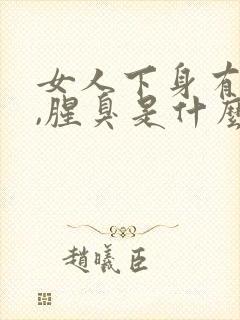 女人下身有
,腥臭是什麼
趙曦臣